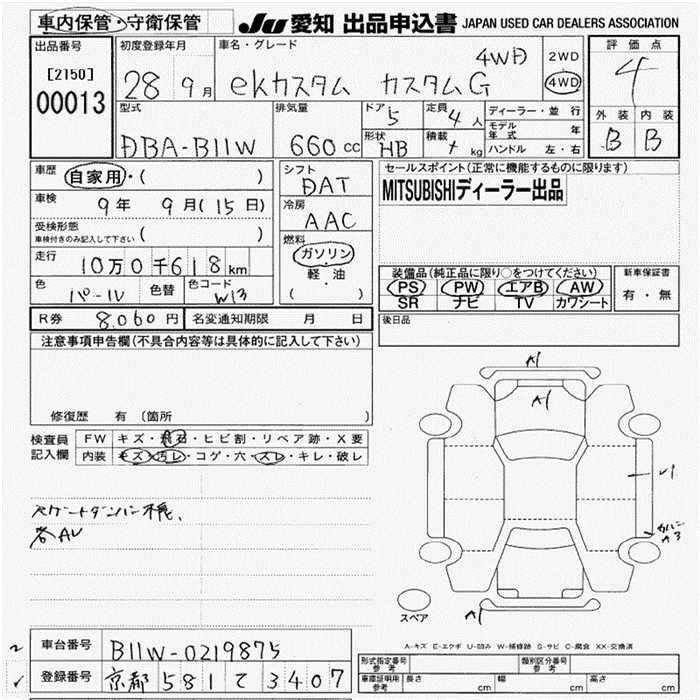 車内保管・守衛保管
JU 愛知 出品申込書 JAPAN USED CAR DEALERS ASSOCIATION
出品番号 [2150] 00013
初度登録年月 28 9月
車名・グレード ekカスタム カスタムG 4WD
2WD 4WD
評価点 4
外装 内装
B B
型式 DBA-B11W
排気量 660 cc
ドア 5
形状 HB
定員 4人
積載 kg
ディーラー・並行
モデル年式 年
ハンドル 左・右
車歴 自家用・( )
車検 9年 9月(15日)
受検形態
車検付きのみ記入して下さい ( )
走行 10万0千618km
色 パール 色替 色コード W13
シフト DAT
冷房 AAC
燃料 ガソリン・軽・油
( )
セールスポイント(正常に機能するものに限ります)
MITSUBISHIディーラー出品
装備品(純正品に限り○をつけてください)
PS PW エアB AW
SR ナビ TV カワシート
新車保証書
有・無
R券 8,060円 名変通知期限 月 日
後日品
注意事項申告欄(不具合内容等は具体的に記入して下さい)
修復歴 有 (箇所 )
検査員記入欄
FW キズ・飛石・ヒビ割・リペア跡・X要
内装 キズ・汚レ・コゲ・穴・スレ・キレ・破レ
A1
A1
A3
A1
スペア
A-キズ E-エクボ U-凹み W-補修跡 S-サビ C-腐食 XX-交換済
車台番号 B11W-0219875
登録番号 京都 581 て 3407
形式指定番号 参考
類別区分番号 参考
車庫証明用 参考 長さ cm 幅 cm 高さ cm